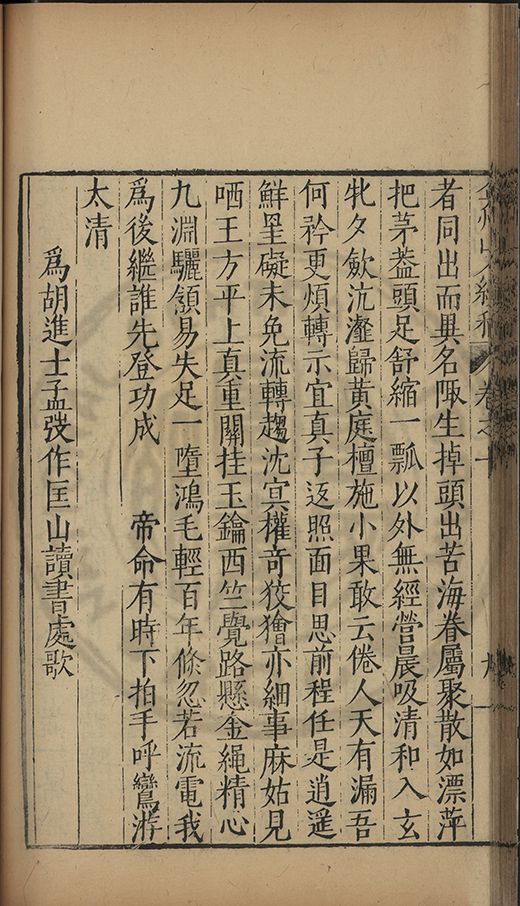 者同出而異名陬生掉頭出苦海眷屬聚散如漂萍
把茅葢頭足舒縮一瓢以外無經營晨吸清和入玄
牝夕歛沆瀣歸黃庭檀施小果敢云倦人天有漏吾
何矜更煩轉示宜真子返照面目思前程任是逍遥
鮮罣礙未免流轉趨沈㝠權竒狡獪亦細事麻姑見
哂王方平上真重關挂玉鑰西竺覺路懸金繩精心
九淵驪頷易失足一墮鴻毛輕百年倐忽若流電我
爲後繼誰先登功成　帝命有時下拍手呼鸞游
太清
爲胡進士孟弢作匡山讀書處歌